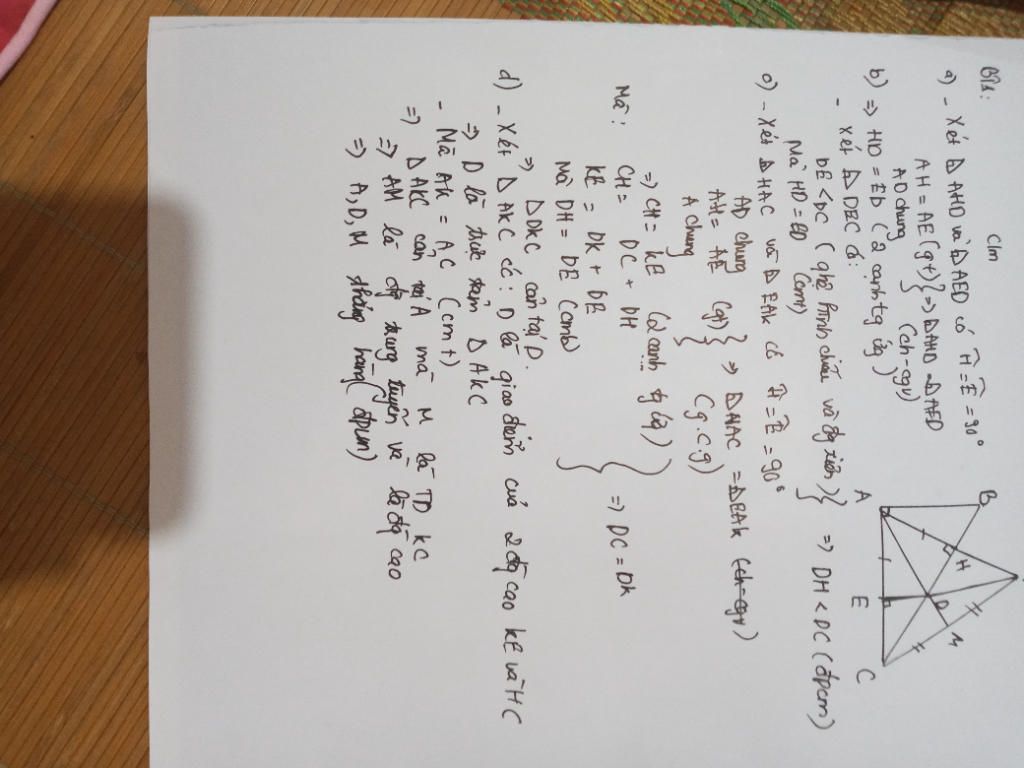 Bài:
Cm
a) - Xét Δ AHD và Δ AED có Ĥ = Ê = 90°
AH = AE (gt) } => Δ AHD = Δ AED
AD chung (ch-cgv)
b) => HD = ED (2 cạnh tg ứg)
- Xét Δ DEC có:
DE < DC (qhệ hình chiếu và đg xiên) } => DH < DC (đpcm)
Mà HD = ED (cmt)
c) - Xét Δ HAC và Δ EAK có Ĥ = Ê = 90°
AD chung
AH = AE (gt) } => Δ HAC = Δ EAK (ch-cgv)
A chung (g.c.g)
=> CH = KE (2 cạnh tg ứg)
Mà: CH = DC + DH
KE = DK + DE } => DC = DK
Mà DH = DE (cmb)
=> Δ DKC cân tại D.
d) - Xét Δ AKC có: D là giao điểm của 2 đg cao KE và HC
=> D là trực tâm Δ AKC
- Mà AK = AC (cmt)
=> Δ AKC cân tại A mà M là TĐ KC
=> AM là đg trung tuyến và là đg cao
=> A, D, M thẳng hàng (đpcm)
B
H
D
M
A
E
C